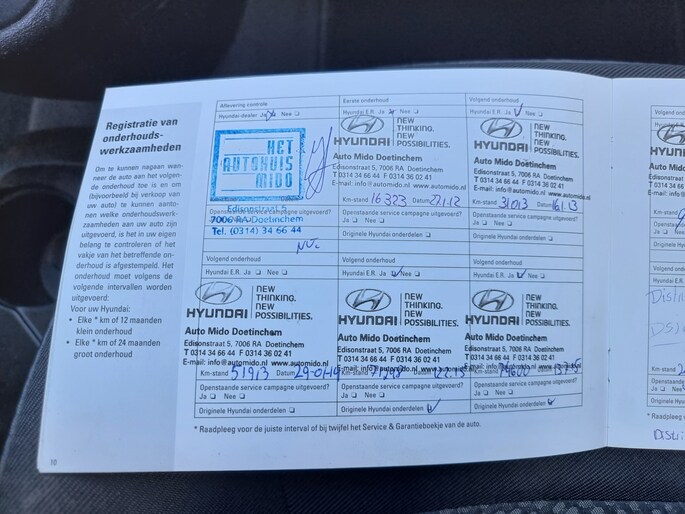 Registratie van
onderhouds-
werkzaamheden
Om te kunnen nagaan wan-
neer de auto aan het volgen-
de onderhoud toe is en om
(bijvoorbeeld bij verkoop van
uw auto) te kunnen aanto-
nen welke onderhoudswerk-
zaamheden aan uw auto zijn
uitgevoerd, is het in uw eigen
belang te controleren of het
vakje van het betreffende on-
derhoud is afgestempeld. Het
onderhoud moet volgens de
volgende intervallen worden
uitgevoerd:
Voor uw Hyundai:
• Elke * km of 12 maanden
klein onderhoud
• Elke * km of 24 maanden
groot onderhoud
10
Aflevering controle
Hyundai-dealer Ja Nee
HET
AUTOHUIS
MIDO
Edisonstraat 5
7006 RA Doetinchem
Tel. (0314) 34 66 44
Eerste onderhoud
Hyundai E.R. Ja Nee
HYUNDAI
NEW
THINKING.
NEW
POSSIBILITIES.
Auto Mido Doetinchem
Edisonstraat 5, 7006 RA Doetinchem
T 0314 34 66 44 F 0314 36 02 41
E-mail: info@automido.nl www.automido.nl
Km-stand 16323 Datum
Openstaande service campagne uitgevoerd?
Ja Nee
Originele Hyundai onderdelen
Volgend onderhoud
Hyundai E.R. Ja Nee
HYUNDAI
NEW
THINKING.
NEW
POSSIBILITIES.
Auto Mido Doetinchem
Edisonstraat 5, 7006 RA Doetinchem
T 0314 34 66 44 F 0314 36 02 41
E-mail: info@automido.nl www.automido.nl
Km-stand 31013 Datum
Openstaande service campagne uitgevoerd?
Ja Nee
Originele Hyundai onderdelen
Volgend onderhoud
Hyundai E.R. Ja Nee
HYUNDAI
NEW
THINKING.
NEW
POSSIBILITIES.
Auto Mido Doetinchem
Edisonstraat 5, 7006 RA Doetinchem
T 0314 34 66 44 F 0314 36 02 41
E-mail: info@automido.nl www.automido.nl
Km-stand 51913 Datum
Openstaande service campagne uitgevoerd?
Ja Nee
Originele Hyundai onderdelen
Volgend onderhoud
Hyundai E.R. Ja Nee
HYUNDAI
NEW
THINKING.
NEW
POSSIBILITIES.
Auto Mido Doetinchem
Edisonstraat 5, 7006 RA Doetinchem
T 0314 34 66 44 F 0314 36 02 41
E-mail: info@automido.nl www.automido.nl
Km-stand Datum
Openstaande service campagne uitgevoerd?
Ja Nee
Originele Hyundai onderdelen
Volgend onderhoud
Hyundai E.R. Ja Nee
HYUNDAI
NEW
THINKING.
NEW
POSSIBILITIES.
Auto Mido Doetinchem
Edisonstraat 5, 7006 RA Doetinchem
T 0314 34 66 44 F 0314 36 02 41
E-mail: info@automido.nl www.automido.nl
Km-stand Datum
Openstaande service campagne uitgevoerd?
Ja Nee
Originele Hyundai onderdelen
* Raadpleeg voor de juiste interval of bij twijfel het Service & Garantieboekje van de auto.